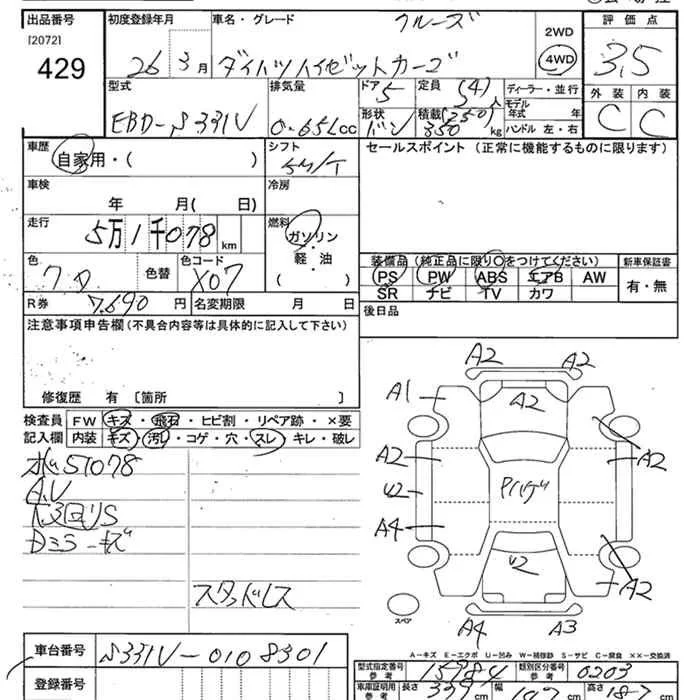 出品番号
[2072]
429
初度登録年月
26 3月
車名・グレード
クルーズ
ダイハツハイゼットカーゴ
2WD
4WD
評価点
3.5
型式
EBD-S331V
排気量
0.65Lcc
ドア
5
形状
バン
定員 (4)
人
積載 (250)
350 kg
ディーラー・並行
モデル
年式 年
ハンドル 左・右
外装 内装
C C
車歴
自家用・( )
シフト
5M/T
セールスポイント (正常に機能するものに限ります)
車検
年 月( 日)
冷房
走行
5万1千078 km
燃料
ガソリン
・
軽・油
色
色替
色コード
X07
装備品 (純正品に限り○をつけてください)
新車保証書
PS PW ABS エアB AW
SR ナビ TV カワ
有・無
R券 7,690 円
名変期限 月 日
後日品
注意事項申告欄 (不具合内容等は具体的に記入して下さい)
修復歴 有 〔箇所 〕
検査員
記入欄
FW キズ・飛石・ヒビ割・リペア跡・×要
内装 キズ・汚レ・コゲ・穴・スレ・キレ・破レ
メ51078
A.V
Dミラーキズ
スタッドレス
A2 A2
A1 A2
A2 A2
U2
A4 U2
A2
A4 A3
スペア
A-キズ E-エクボ U-凹み W-補修跡 S-サビ C-腐食 ××-交換済
車台番号 S331V-0108301
登録番号
型式指定番号
参考
15984
類別区分番号
参考
0203
車庫証明用
参考
長さ 339 cm
幅 147 cm
高さ 187 cm